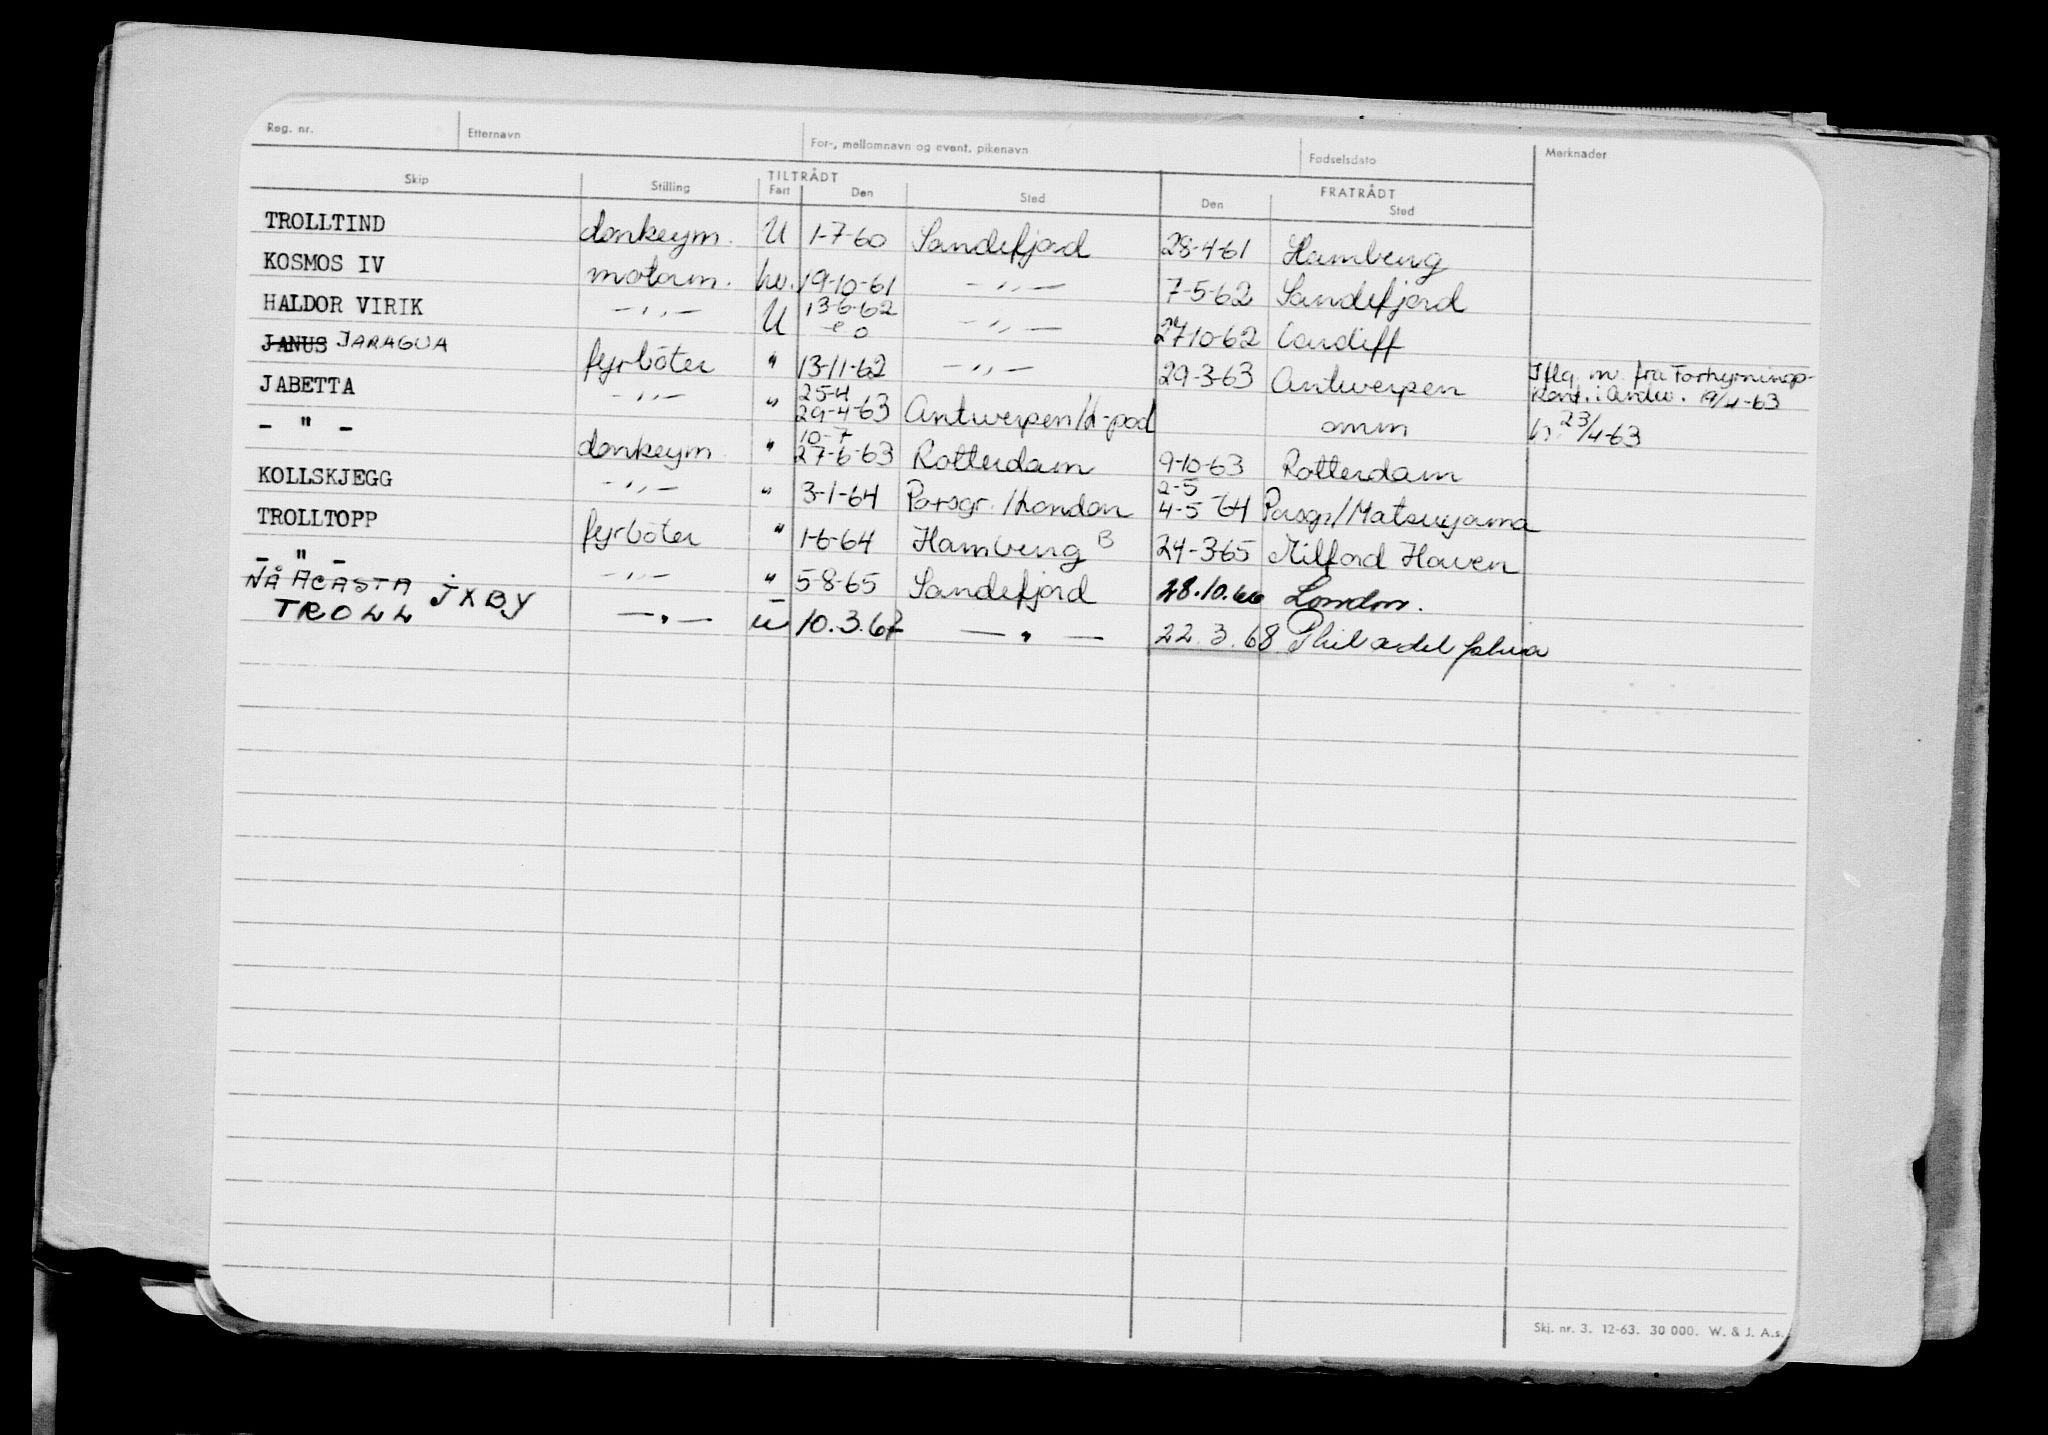 Reg. nr. Etternavn For-, mellomnavn og event. pikenavn Fødselsdato Merknader
TILTRÅDT FRATRÅDT
Skip Stilling Fart Den Sted Den Sted
TROLLTIND donkeym. U 1-7-60 Sandefjord 28-4-61 Hamburg
KOSMOS IV motorm. hv. 19-10-61 -„- 7-5-62 Sandefjord
HALDOR VIRIK -„- U 13-6-62 -„- 27-10-62 Cardiff
JANUS JARAGUA fyrbøter " 13-11-62 -„- 29-3-63 Antwerpen Iflg. m. fra Forhyrnings-
kont. i Antw. 19/4-63
25-4
JABETTA -„- " 29-4-63 Antwerpen/k-pod omm 23/4-63
10-7
- " - donkeym " 27-6-63 Rotterdam 9-10-63 Rotterdam
2-5
KOLLSKJEGG -„- " 3-1-64 Porsgr./London 4-5-64 Porsgr/Matsuyama
TROLLTOPP fyrbøter " 1-6-64 Hamburg B 24-3-65 Milford Haven
- " - -„- " 5-8-65 Sandefjord 28.10.66 London.
NÅ ACASTA JXBY
TROLL -„- u 10.3.67 -„- 22.3.68 Philadelphia
Skj. nr. 3. 12-63. 30 000. W. & J. A.s.